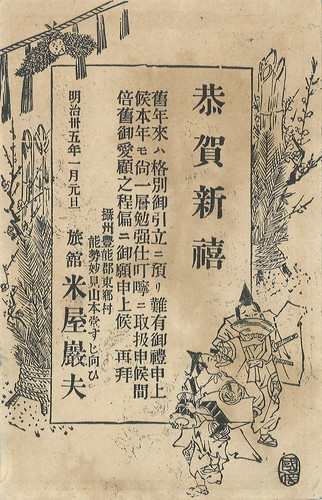 恭賀新禧
舊年來ハ格別御引立ニ預リ難有御禮申上
候本年モ尙一層勉强仕叮嚀ニ取扱申候間
倍舊御愛顧之程偏ニ御願申上候 再拜
攝州豐能郡東鄕村
能勢妙見山本堂すじ向ひ
旅舘 米屋巖夫
明治卅五年一月元旦